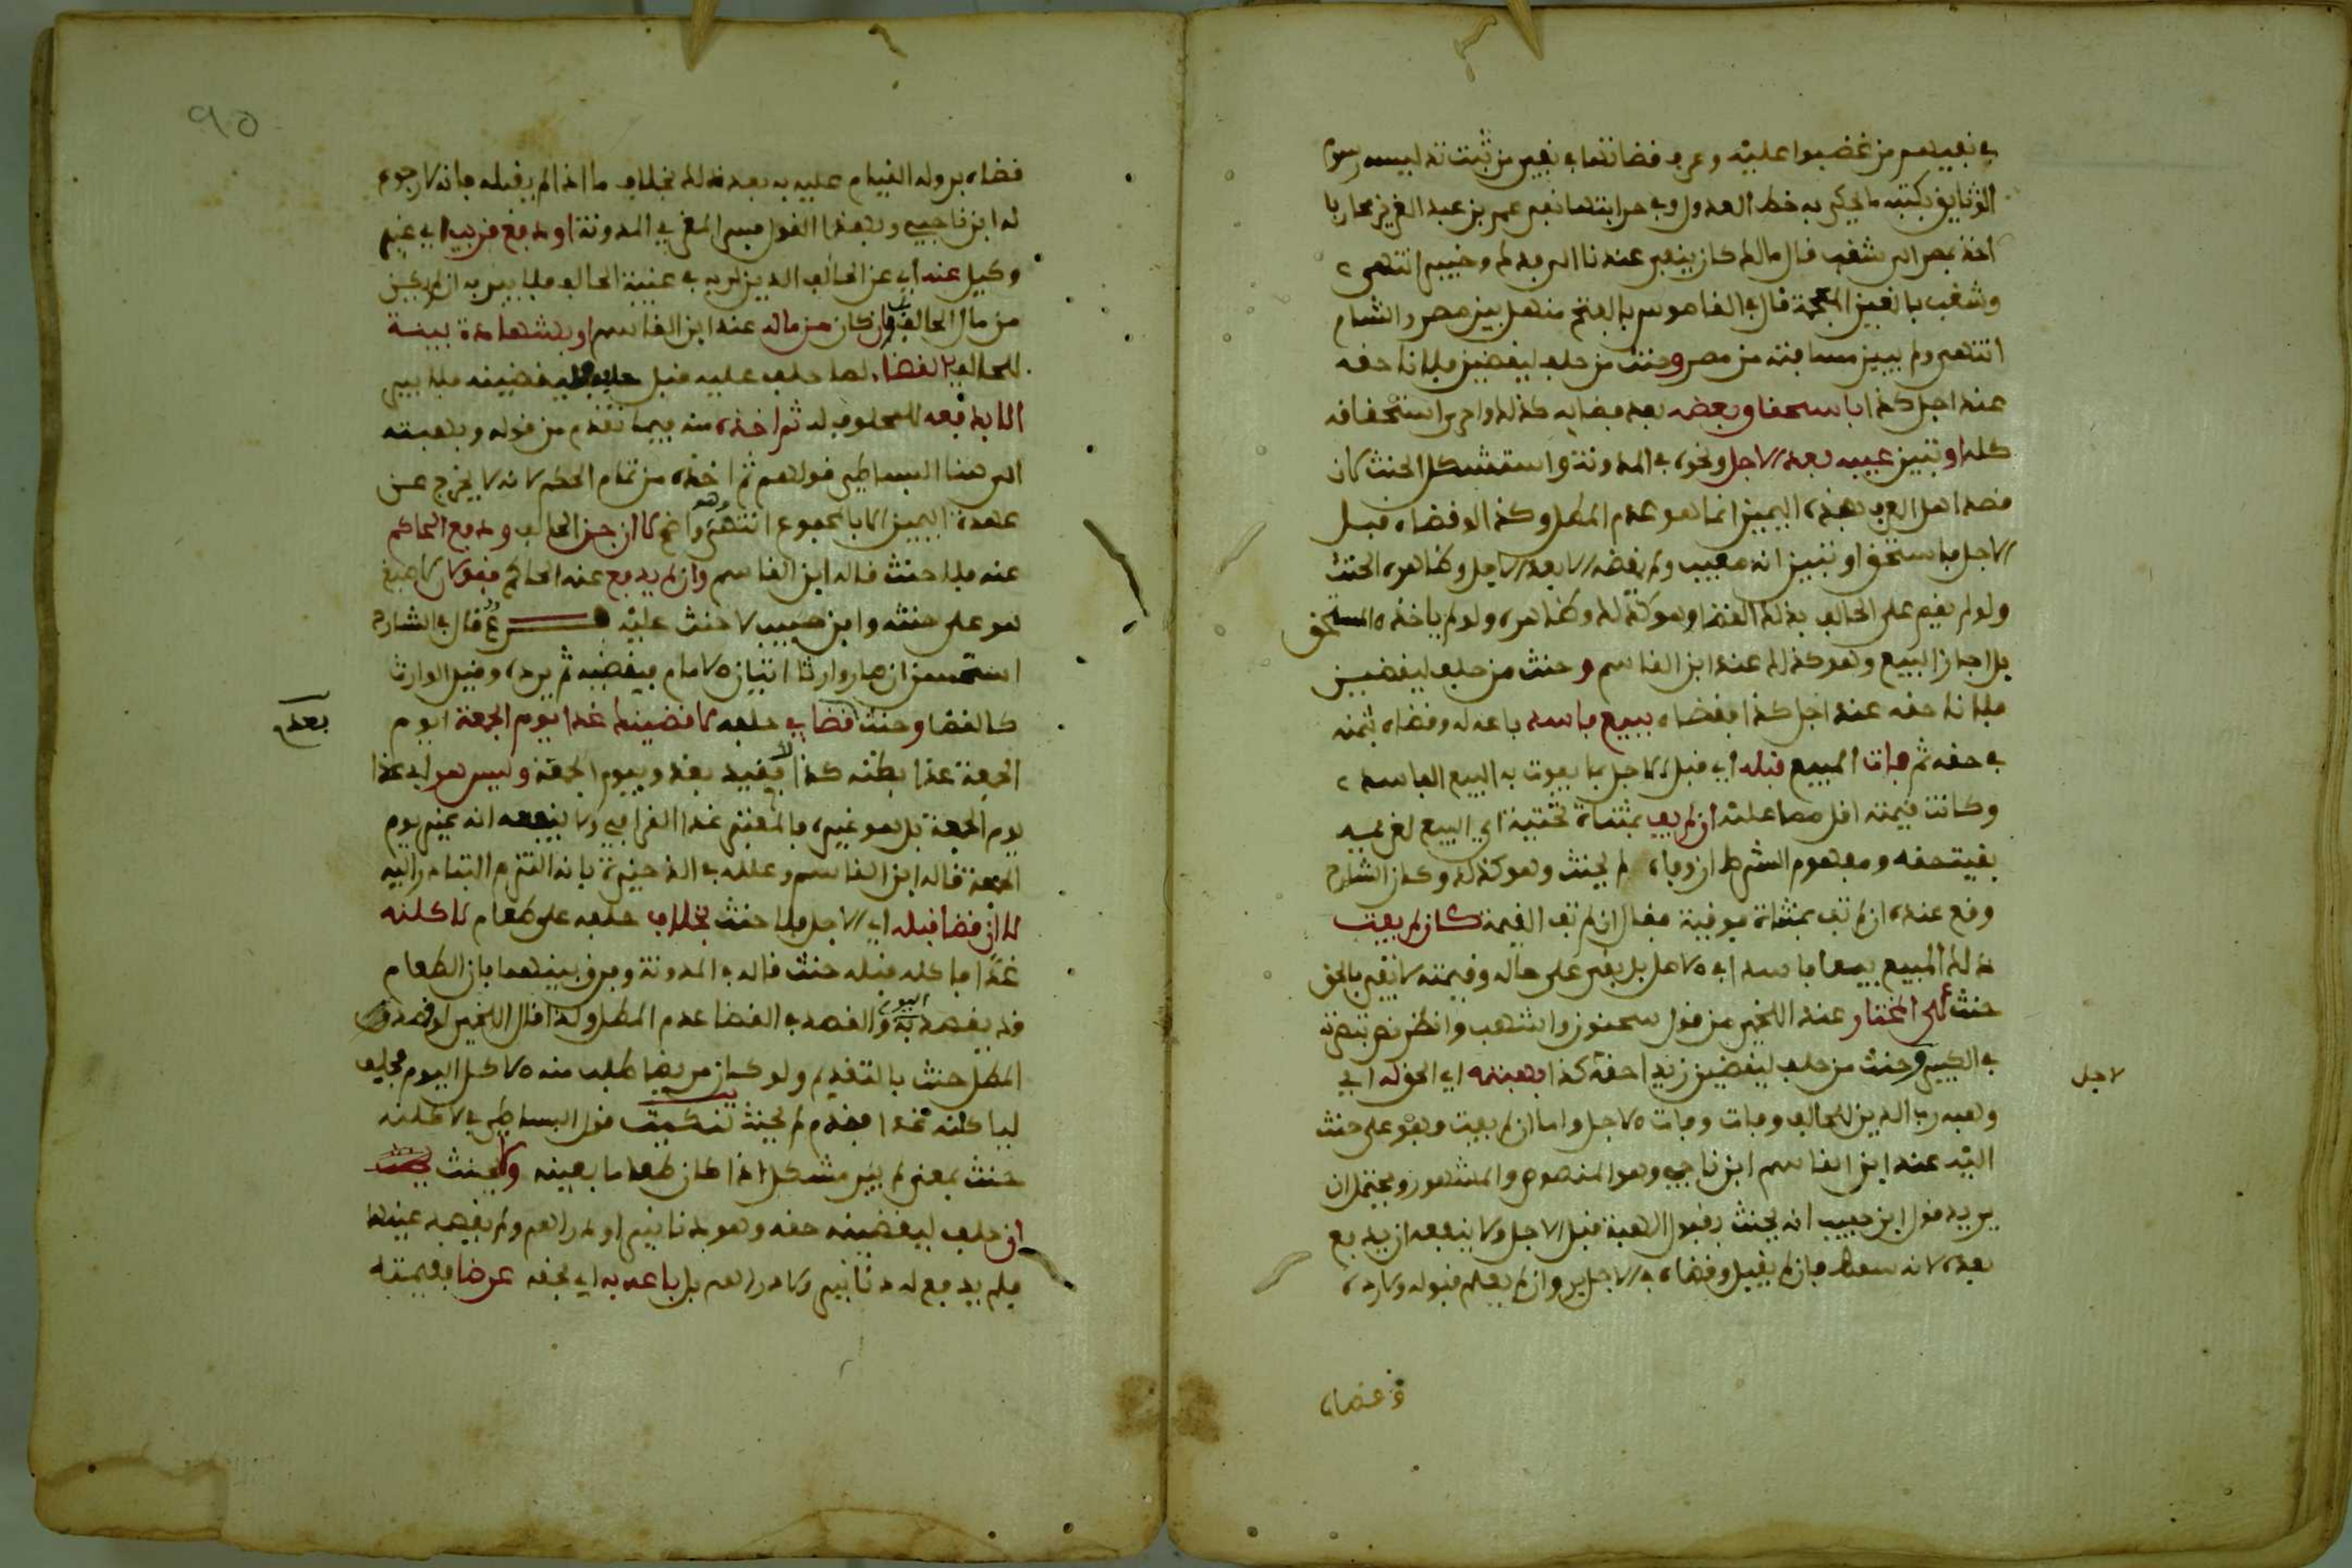 في نفيهم من غضبوا عليه وعرف قضاتنا في نفي من ثبت تدليسه رسوم
الوثايق بكتبه ما يحكي به خط العدول وفي حرابتها نفى عمر بن عبد العزيز محاربا
أخذ بمصر الى شغب قال مالك كان ينفى عندنا الى فدك وخيبر انتهى
وشغب بالغين المعجمة قال في القاموس بالفتح منهل بين مصر والشام
انتهى ولم يبين مسافته من مصر وحنث من حلف ليقضين فلانا حقه
عند اجل كذا باستحقاق بعضه بعد قضايه كذلك واحرى استحقاقه
كله او تبين عيبه بعد الاجل ونحوه في المدونة واستشكل الحنث لان
قصد اهل العرف بهذه اليمين انما هو عدم المطل وكذا لو قضاه قبل
الاجل فاستحق او تبين انه معيب ولم يقضه الا بعد الاجل وظاهره الحنث
ولو لم يقم على الحالف بذلك القضا وهو كذلك وظاهره ولو لم ياخذه المستحق
بل اجاز البيع وهو كذلك عند ابن القاسم وحنث من حلف ليقضين
فلانا حقه عند اجل كذا فقضاه ببيع فاسد باعه له وقضاه بثمنه
في حقه ثم فات المبيع قبله اي قبل الاجل بما يفوت به البيع الفاسد
وكانت قيمته اقل مما عليه ان لم يف بمثناة تحتية اي البيع لغريمه
بقيت حقه ومفهوم الشرط ان وفاه لم يحنث وهو كذلك وكان الشارح
وقع عنده ان لم تف بمثناة فوقية فقال ان لم تف القيمة كان لم يفت
ذلك المبيع بيعا فاسدا في الاجل بل بقي على حاله وقيمته لا تفي بالحق
حنث على المختار عند اللخمي من قول سحنون واشهب وانظر نص
في الكبير وحنث من حلف ليقضين زيدا حقه كذا بهبته اي الحق له اي
لاجل
وهبه رب الدين للحالف وفات وفات الاجل واما ان لم يفت فهو على حنث
اليه عند ابن القاسم ابن ناجي وهو المنصوص والمشهور ويحتمل ان
يريد قول ابن حبيب انه يحنث بقبول الهبة قبل الاجل ولا ينفعه ان يدفع
بعده لانه سقط فان لم يقبل وقضاه في الاجل بر وان لم يعلم قبوله ولا رده
وقضاه
٩٥
قضاه بر وله القيام عليه به بعد ذلك بخلاف ما اذا لم يقبله فانه لا رجوع
له ابن ناجي وبهذا القول فسر المغربي المدونة او دفع قريب اي غير
وكيل عنه اي عن الحالف الدين لربه في غيبة الحالف فلا يبر به ان لم يكن
من مال الحالف بل وان كان من ماله عند ابن القاسم او بشهادة بينة
للحالف بالقضا لما حلف عليه قبل حلفه ليقضينه فلا يبر
الا بدفعه للمحلوف له ثم اخذه منه فيما تقدم من قوله وبهبته
الى هنا البساطي قولهم ثم اخذه من تمام الحكم لانه لا يخرج عن
عهدة اليمين الا بالمجموع انتهى وهو واضح لا ان جن الحالف ودفع الحاكم
عنه فلا حنث قاله ابن القاسم وان لم يدفع عنه الحاكم فقولان لاصبغ
هو على حنثه وابن حبيب لا حنث عليه فرع قال في الشارح
استحسن ان صار وارثا اتيان الامام فيقضيه ثم يرده وقيل الوارث
كالقضا وحنث بقضا في حلفه لاقضينك غدا يوم الجمعة اليوم
بعده
الجمعة غدا بظنه كذا لا بقيد بغد ويوم الجمعة وليس هو اي غدا
يوم الجمعة بل هو غيره فالمعتبر غدا القرافي ولا ينفعه انه يعني يوم
الجمعة قاله ابن القاسم وعلله في الذخيرة بانه التزم التبادر اليه
لا ان قضا قبله اي الاجل فلا حنث بخلاف حلفه على طعام لاكلنه
غدا فاكله قبله حنث قاله في المدونة وفرق بينهما بان الطعام
قد يقصد به اليوم والقصد في القضا عدم المطل ولذا قال اللخمي لو قصد
المطل حنث بالتقديم ولو كان مريضا طلب منه الاكل اليوم فحلف
لياكلنه غدا فقدم لم يحنث تنكيت قول البساطي في لاكلنه
حنث بمعنى لم يبر مشكل اذا كان طعاما بعينه ولا يحنث
ان حلف ليقضينه حقه وهو دنانير او دراهم ولم يقصد عينها
فلم يدفع له دنانير ولا دراهم بل باعه به اي بحقه عرضا بقيمته